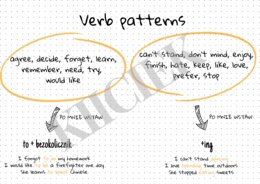 Verb patterns
agree, decide, forget, learn,
remember, need, try,
would like
can't stand, don't mind, enjoy,
finish, hate, keep, like, love,
prefer, stop
PO MNIE WSTAW
PO MNIE WSTAW
to + bezokolicznik
+ing
I forgot to do my homework
I would like to be a firefighter one day
She learnt to speak Chinese
I can't stand
I love spending time outdoors
She stopped eating sweets